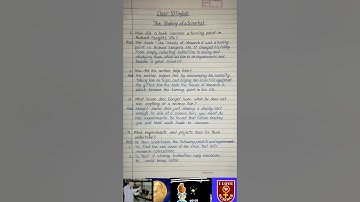 Class-10 English
The Making of a Scientist
1. How did a book become a turning point in
Richard Ebright's life?
Ans. The book 'The Travels of Monarch X' was a turning
point in Richard Ebright's life. It changed his hobby
from simply collecting butterflies to raising and
studying them, which led him to do experiments and
become a great scientist.
2. How did his mother help him?
Ans. His mother helped him by encouraging his curiosity,
taking him on trips, and buying him scientific equipment.
She gifted him the book 'The Travels of Monarch X',
which became the turning point in his life.
3. What lesson does Ebright learn when he does not
win anything at a science fair?
Ans. Ebright learns that just showing a display isn't
enough to win at a science fair, you must do
real experiments. He found that failure teaches
you and hard work leads to success.
4. What experiments and projects does he then
undertake?
Ans. He then undertakes the following projects and experiments
1. To find the real cause of the virus that kills
monarch caterpillars.
2. To test if viceroy butterflies copy monarchs
to avoid being eaten.
I LOVE